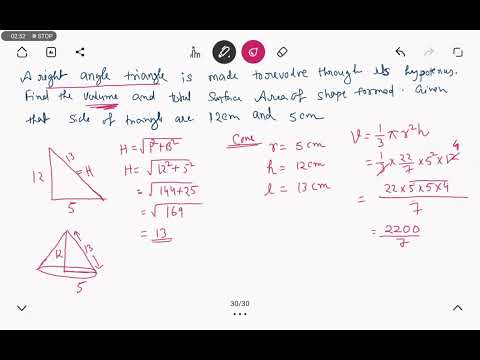 02:52 STOP
A right angle triangle is made to revolve through its hypotenus.
Find the volume and total Surface Area of shape formed. Given
that side of triangle are 12cm and 5cm
12
13
= H
5
H = √P²+B²
H = √12²+5²
= √144+25
= √169
= 13
Cone
r = 5cm
h = 12cm
l = 13cm
V = 1/3 π r² h
= 1/3 × 22/7 × 5² × 12 4
= 22×5×5×4/7
= 2200/7
12
13
5
30/30